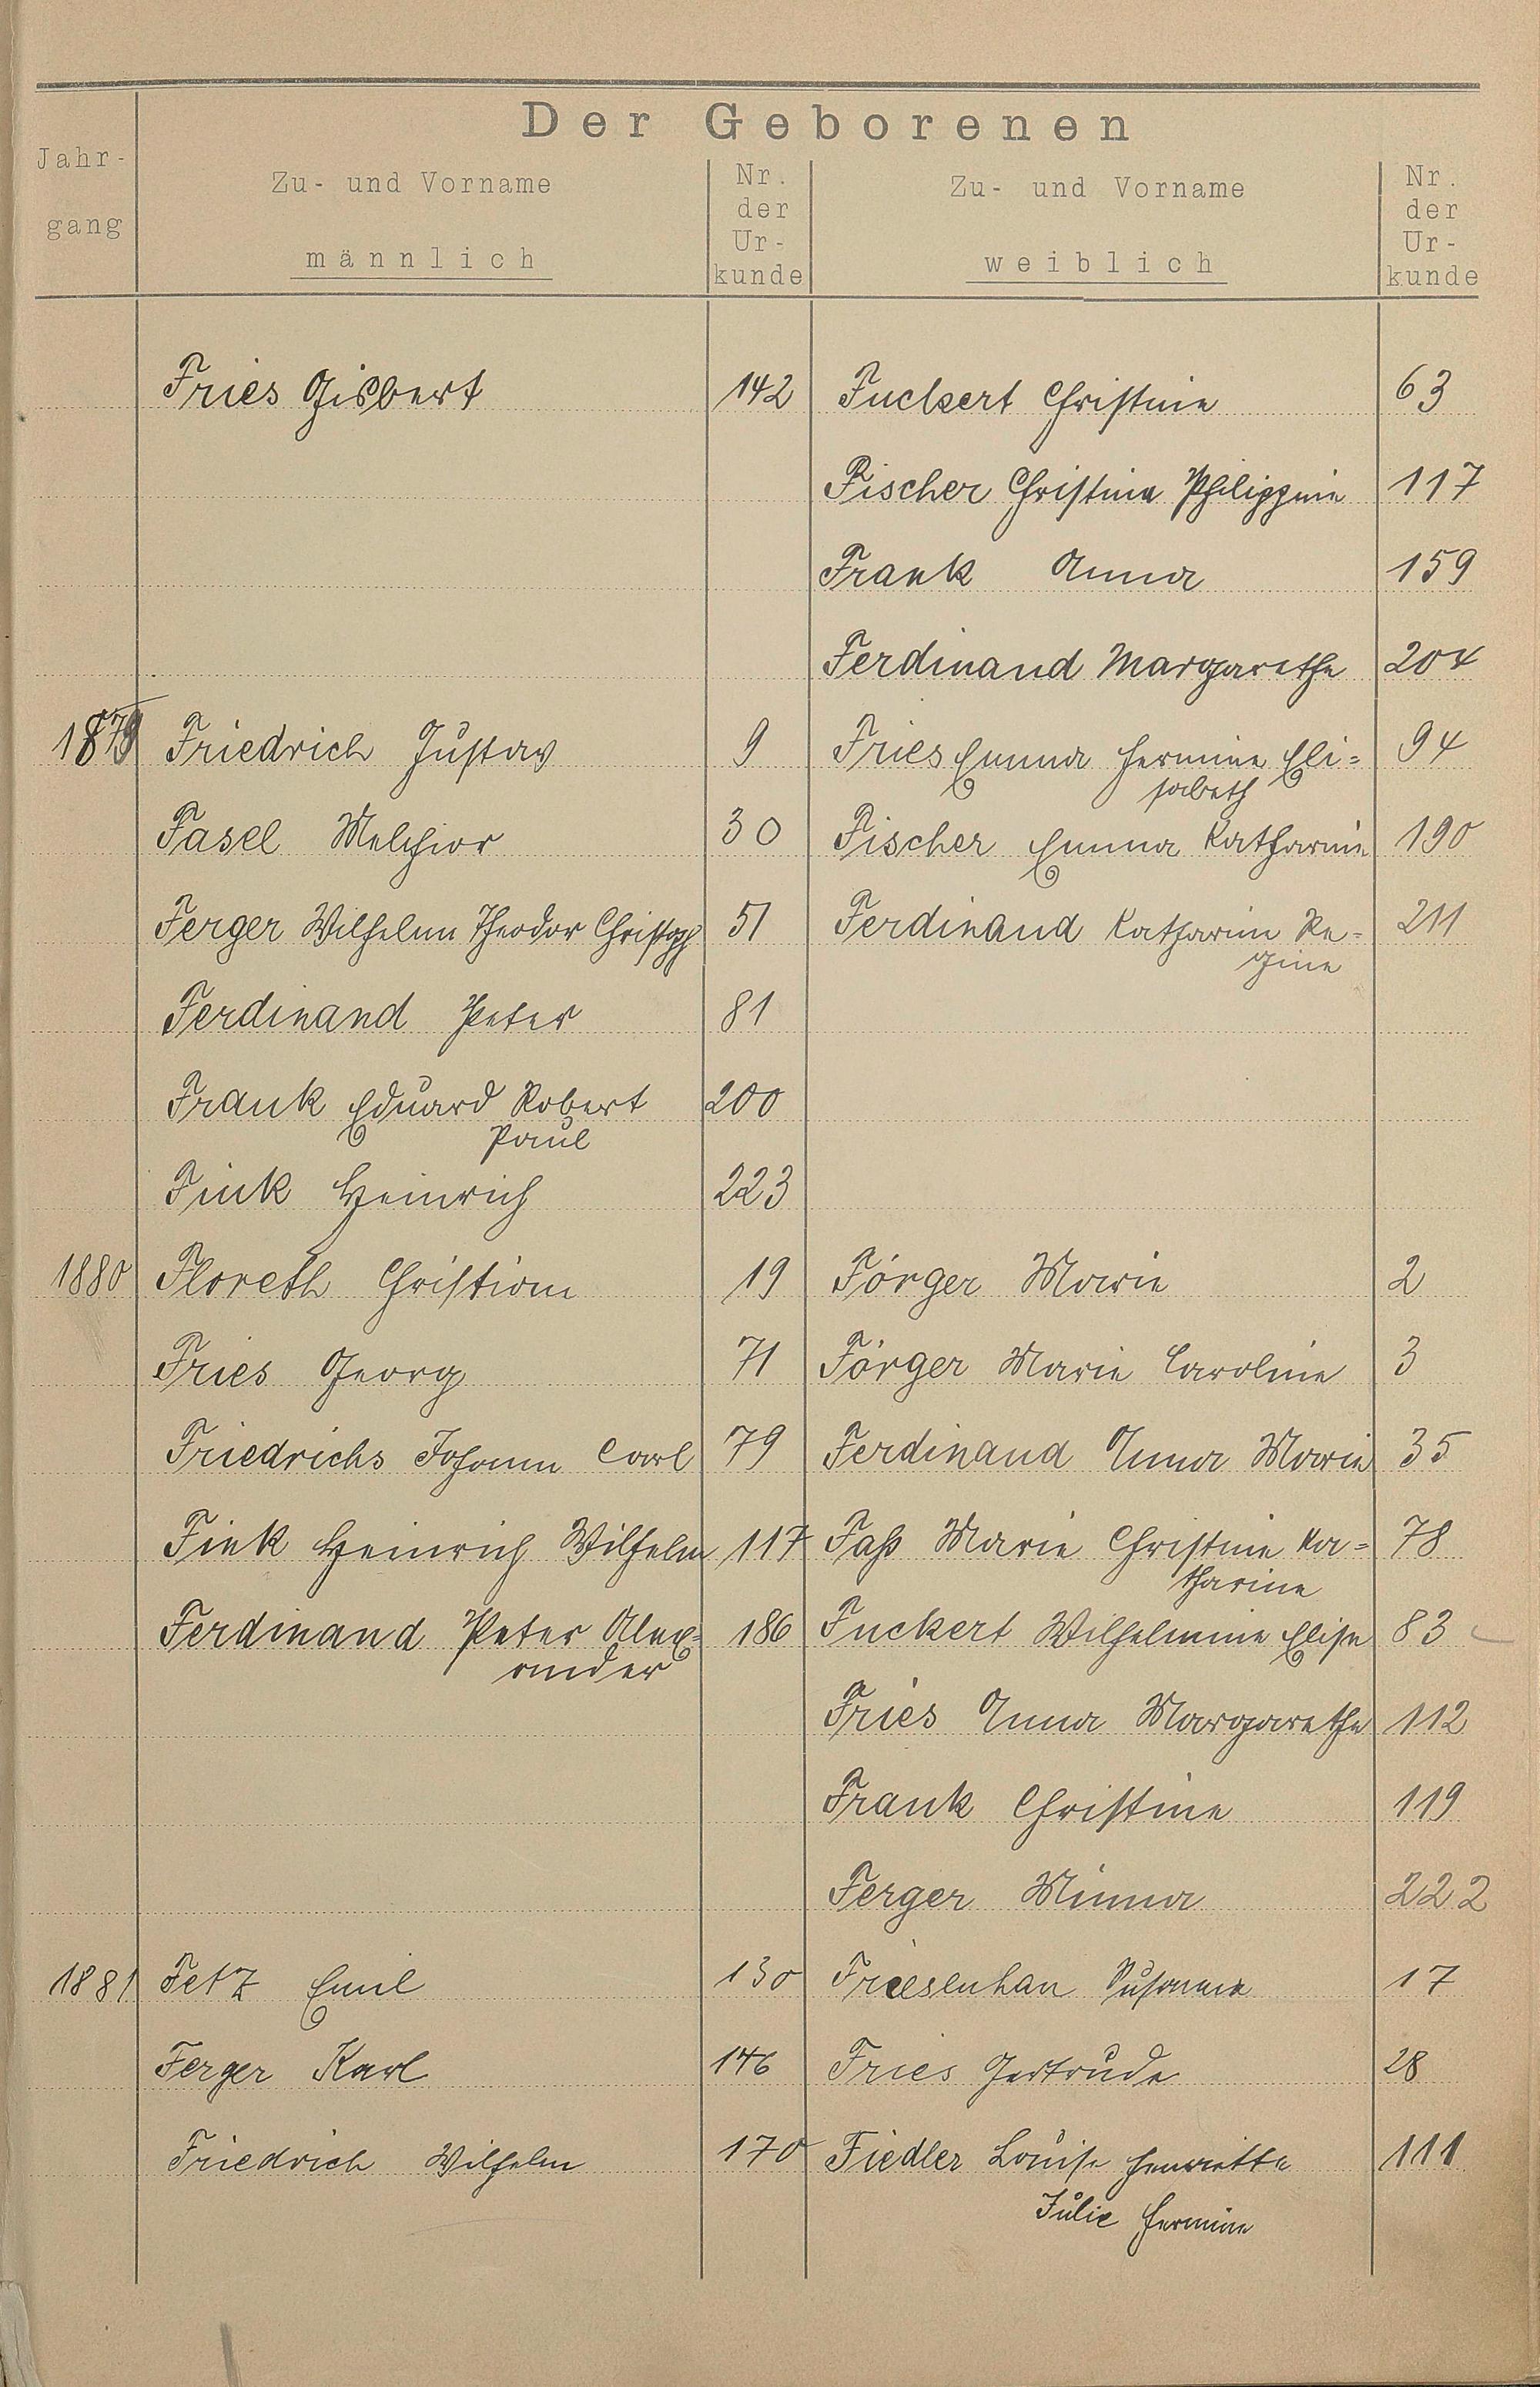 Der Geborenen
Jahr-
gang
Zu- und Vorname
männlich
Nr.
der
Ur-
kunde
Zu- und Vorname
weiblich
Nr.
der
Ur-
kunde
Fries Gisbert 142 Fuckert Christine 63
Fischer Christina Philippine 117
Frank Anna 159
Ferdinand Margarethe 204
1879 Friedrich Gustav 9 Fries Emma Hermine Eli= 94
sabeth
Fasel Melchior 30 Fischer Emma Katharine 190
Ferger Wilhelm Theodor Christoph 51 Ferdinand Katharine Re= 211
gine
Ferdinand Peter 81
Frank Eduard Robert 200
Paul
Fink Heinrich 223
1880 Floreth Christian 19 Förger Marie 2
Fries Georg 71 Förger Marie Caroline 3
Friedrichs Johann Carl 79 Ferdinand Anna Marie 35
Fink Heinrich Wilhelm 117 Faß Marie Christine Ka= 78
tharine
Ferdinand Peter Alex= 186 Fuckert Wilhelmine Elise 83
ander
Fries Anna Margarethe 112
Frank Christine 119
Ferger Minna 222
1881 Fetz Emil 130 Friesenhan Susanna 17
Ferger Karl 146 Fries Gertrude 28
Friedrich Wilhelm 170 Fiedler Louise Henriette 111
Julie Hermine